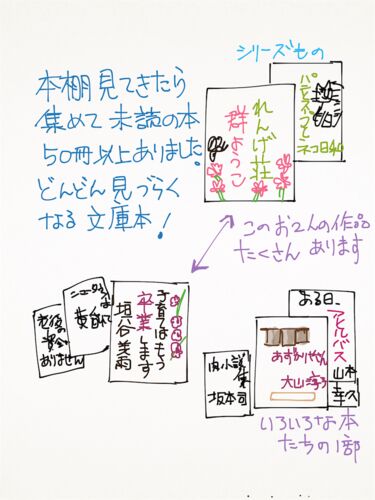 本棚見てきたら
集めて未読の本
50冊以上ありました。
どんどん見づらく
なる文庫本！
シリーズもの
パンとスープと
ネコ日和
れんげ荘
群ようこ
このお2人の作品
たくさんあります
老後の
資金が
ありません
ニュータウンは
黄昏れて
子育てはもう
卒業します
垣谷美雨
ある日、
アヒルバス
山本
幸久
あずかりやさん
大山淳子
肉小説
集
坂木司
いろいろな本
たちの1部